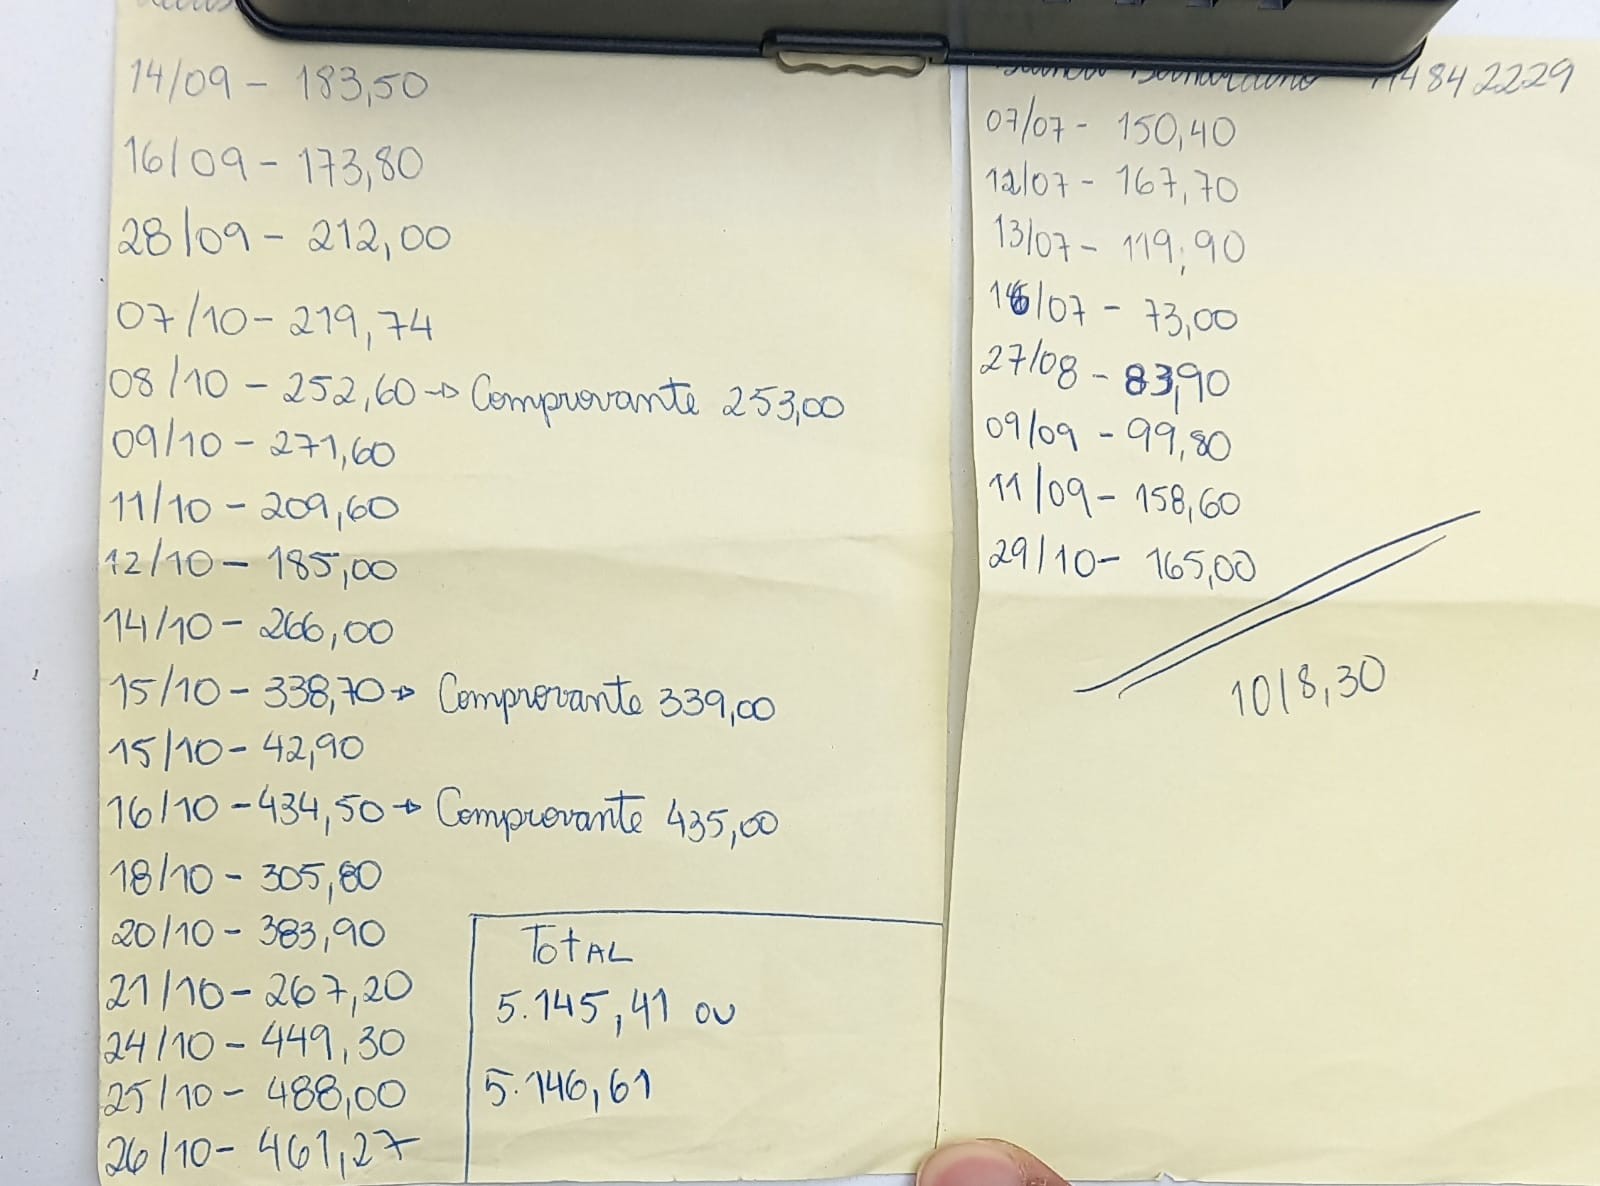 14/09 - 183,50
16/09 - 173,80
28/09 - 212,00
07/10 - 219,74
08/10 - 252,60 → Comprovante 253,00
09/10 - 271,60
11/10 - 209,60
12/10 - 185,00
14/10 - 266,00
15/10 - 338,70 → Comprovante 339,00
15/10 - 42,90
16/10 - 434,50 → Comprovante 435,00
18/10 - 305,80
20/10 - 383,90
21/10 - 267,20
24/10 - 449,30
25/10 - 488,00
26/10 - 461,27
TOTAL
5.145,41 ou
5.146,61
4842229
07/07 - 150,40
12/07 - 167,70
13/07 - 119,90
16/07 - 73,00
27/08 - 83,90
09/09 - 99,80
11/09 - 158,60
29/10 - 165,00
1018,30